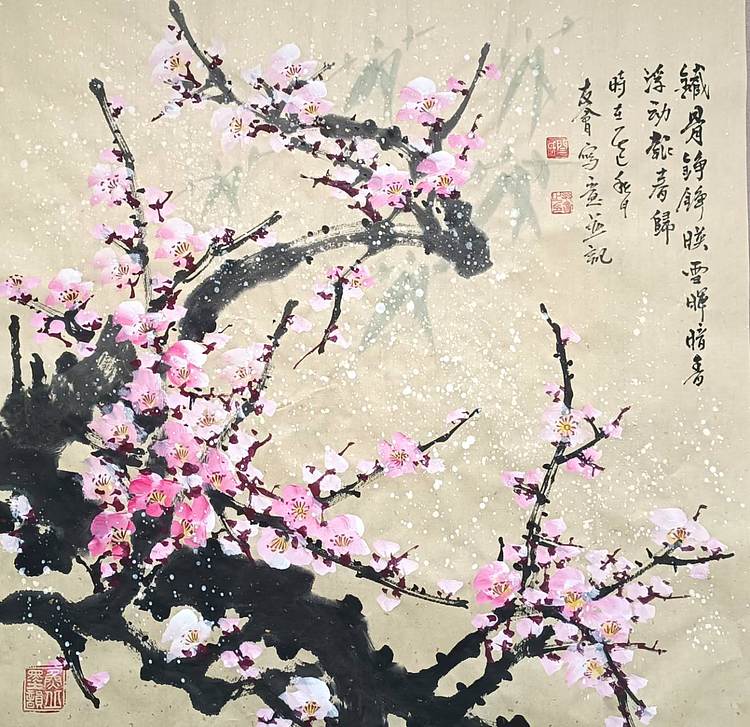 鐵骨錚錚暎雪暉暗香
浮动春歸
時在乙巳秋月
友會寫意並記